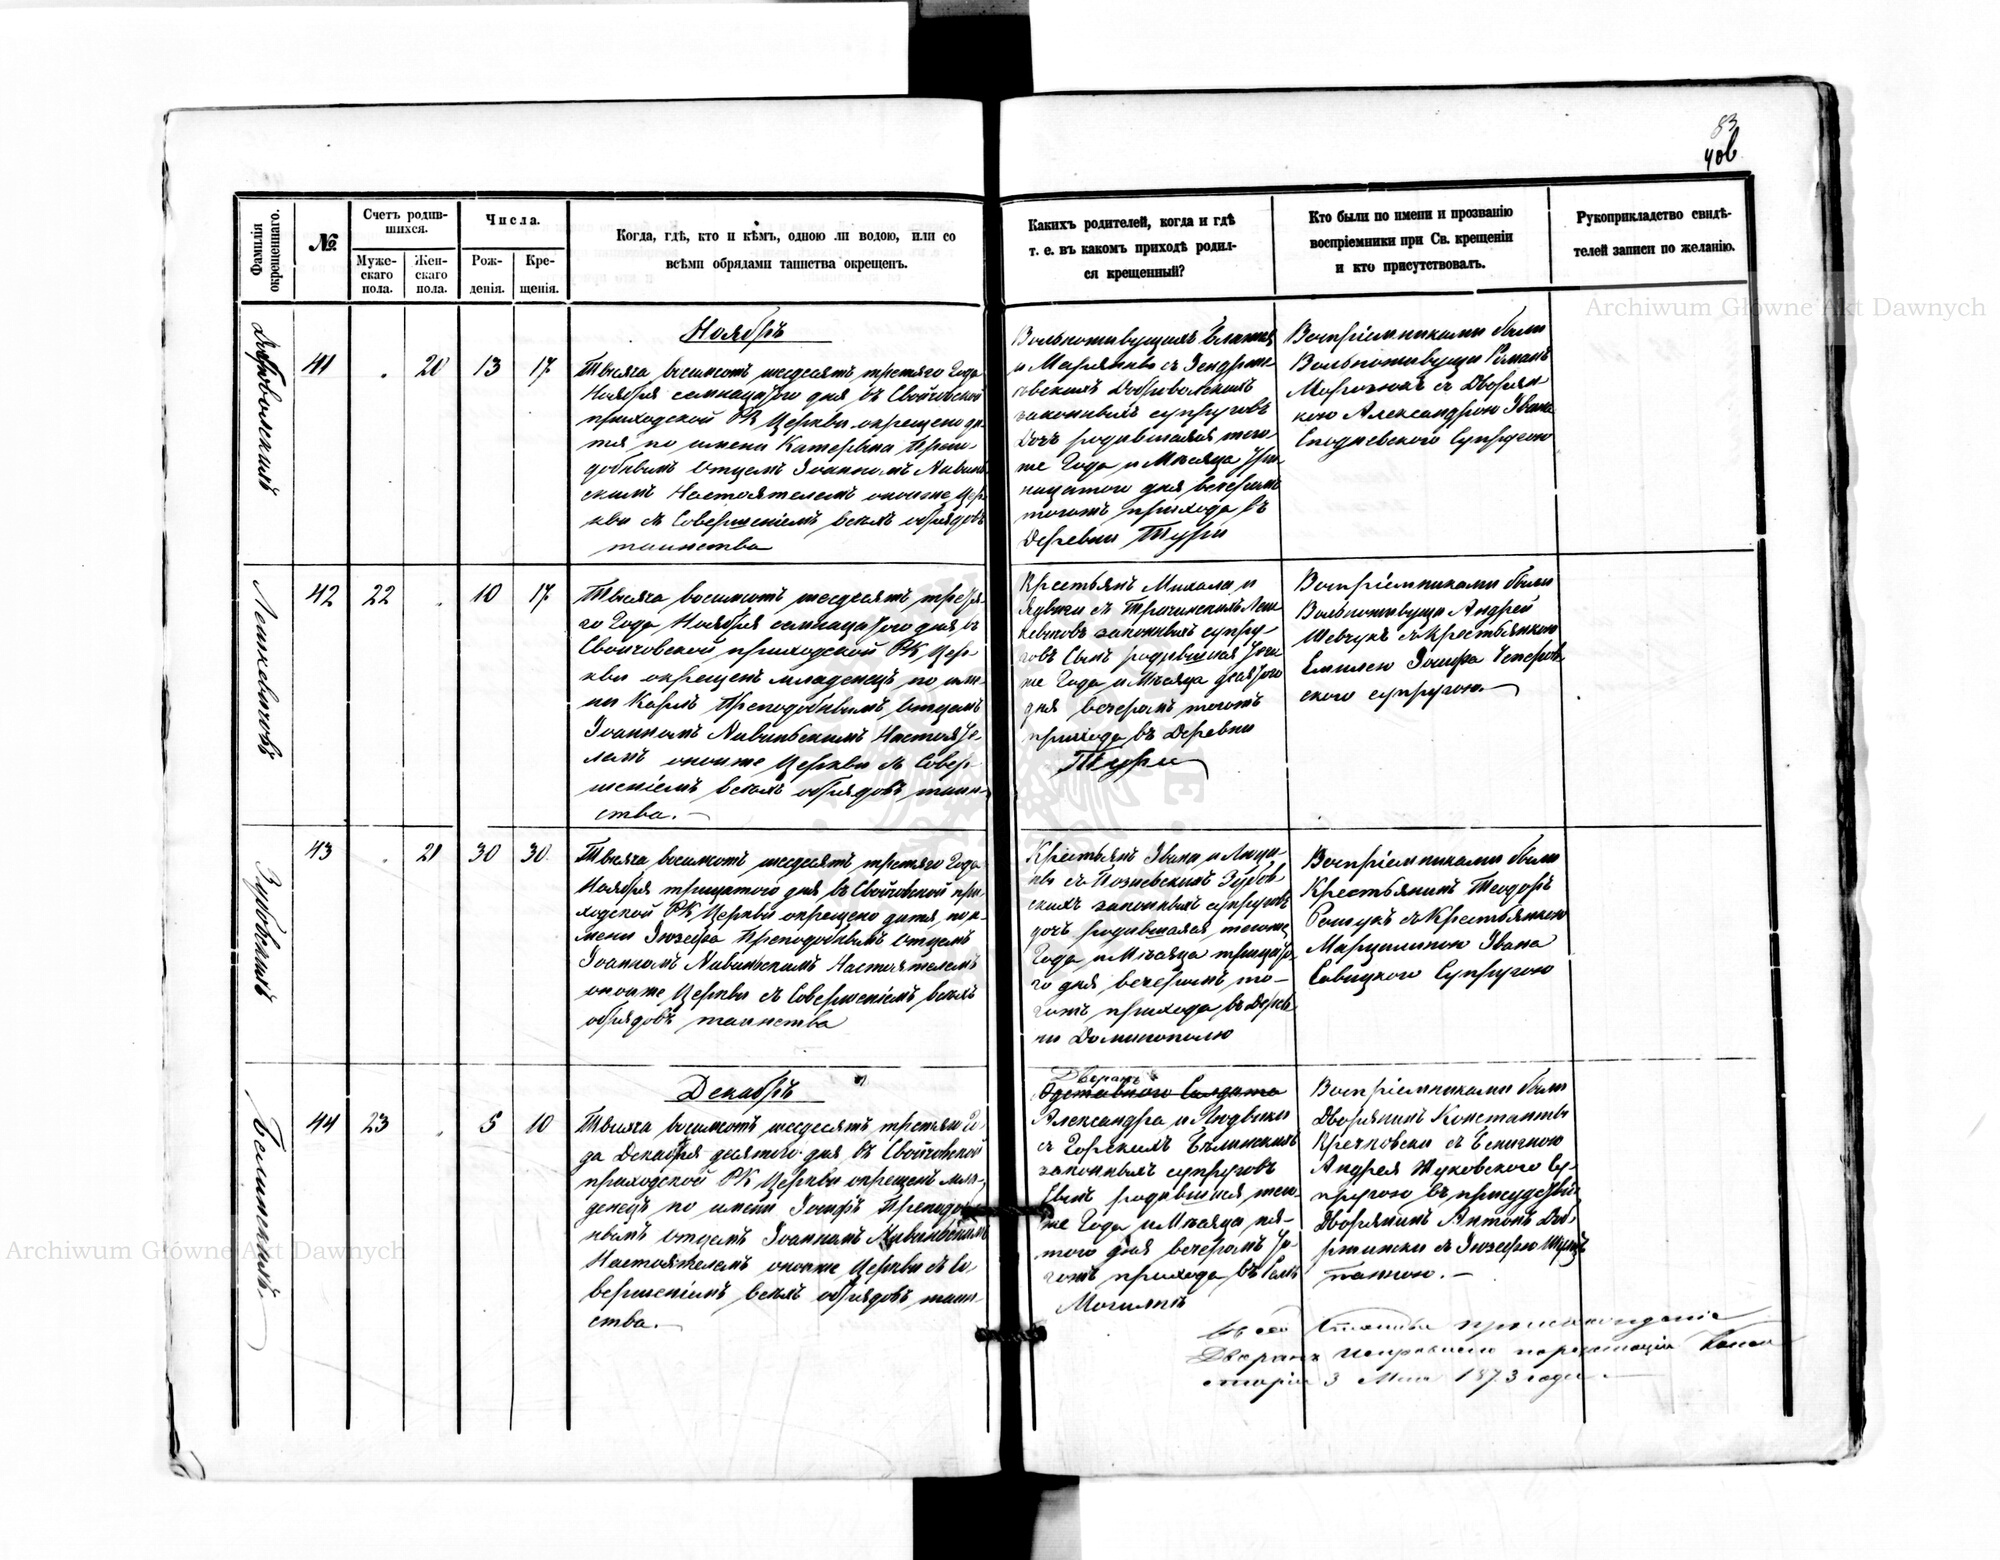 83
406
Фамилія окрещеннаго.
№
Счетъ родив-
шихся.
Муже-
скаго
пола.
Жен-
скаго
пола.
Числа.
Рож-
денія.
Кре-
щенія.
Когда, гдѣ, кто и кѣмъ, одною ли водою, или со
всѣми обрядами таинства окрещенъ.
Какихъ родителей, когда и гдѣ
т. е. въ какомъ приходѣ родил-
ся крещенный?
Кто были по имени и прозванію
воспріемники при Св. крещеніи
и кто присутствовалъ.
Рукоприкладство свидѣ-
телей записи по желанію.
Archiwum Główne Akt Dawnych
Добровольскихъ
41
20
13
17
Ноябрь
Тысяча восимсотъ шесдесятъ третяго Года
Ноября семнацатого дня въ Свойчовской
приходской РК Церкви окрещено ди-
тя по имени Катерына Препо-
добнымъ Отцемъ Іоанномъ
Настоятелемъ онойже Цер-
кви съ Совершеніемъ всехъ обрядовъ
таинства
Вольноживущихъ
и Маріянны съ
Добровольскихъ
законныхъ супруговъ
Дочъ родившаяся того-
же Года и Мѣсяца три-
нацатого дня вечеромъ
тогожъ прихода въ
Деревни Туры
Воспріемниками были
Вольноживущи Романъ
съ Дворян-
кою Александрою Ивана
Супругою
Лешкевичовъ
42
22
10
17
Тысяча восимсотъ шесдесятъ третя-
го Года Ноября семнацатого дня въ
Свойчовской приходской РК Цер-
кви окрещенъ младенецъ по име-
ни Кароль Преподобнымъ Отцемъ
Іоанномъ Настояте-
лемъ онойже Церкви съ Совер-
шеніемъ всехъ обрядовъ таин-
ства.
Крестьянъ Михала и
Ядвиги съ Леш-
кевичовъ законныхъ супру-
говъ Сынъ родившійся того-
же Года и Мѣсяца десятого
дня вечеромъ тогожъ
прихода въ Деревни
Туры
Воспріемниками были
Вольноживущи Андрей
Шевчукъ съ Крестьянкою
Емилею Іосифа
ского супругою.
Зубовскихъ
43
21
30
30
Тысяча восимсотъ шесдесятъ третяго Года
Ноября трицатого дня въ Свойчовской при-
ходской РК Церкви окрещено дитя, по и-
мени Іюзефа Преподобнымъ Отцемъ
Іоанномъ Настоятелемъ
онойже Церкви съ Совершеніемъ всехъ
обрядовъ таинства
Крестьянъ Ивана и
съ Зубов-
скихъ законныхъ супруговъ
дочъ родившаяся, тогоже
Года и Мѣсяца трицато-
го дня вечеромъ то-
гожъ прихода въ Дерев-
ни Доминополю
Воспріемниками были
Крестьянинъ Теодоръ
съ Крестьянкою
Марцилиною Ивана
Савицкого Супругою
Белинскихъ.
44
23
5
10
Декабрь
Тысяча восимсотъ шесдесятъ третяго Го-
да Декабря десятого дня въ Свойчовской
приходской РК Церкви окрещенъ мла-
денецъ по имени Іосифъ Преподо-
бнымъ Отцемъ Іоанномъ
Настоятелемъ онойже Церкви съ Со-
вершеніемъ всехъ обрядовъ таин-
ства.
Дворянъ
Отставного Солдата
Александра и Людвики
съ Горскихъ Бѣлинскихъ
законныхъ супруговъ
Сынъ родившійся того-
же Года и Мѣсяца, пя-
того дня вечеромъ то-
гожъ прихода въ Селѣ
Воспріемниками были
Дворянинъ Константы
съ
Андрея Жуковского Су-
пругою въ присудствіи
Дворянинъ Антонъ
съ Іюзефою
панною.
происхожденіе
Дворянъ
3 Мая 1873 года.
Archiwum Główne Akt Dawnych